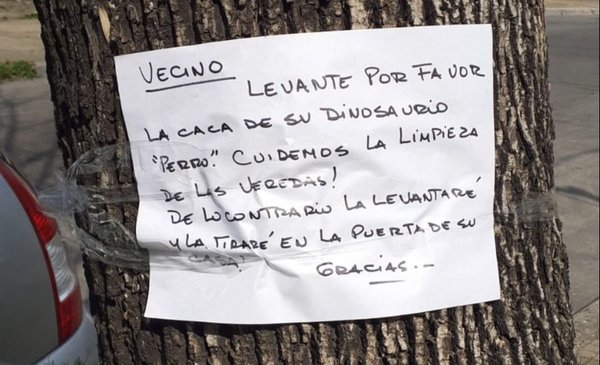 VECINO
LEVANTE POR FAVOR
LA CACA DE SU DINOSAURIO
"PERRO". CUIDEMOS LA LIMPIEZA
DE LAS VEREDAS!
DE LO CONTRARIO LA LEVANTARÉ
Y LA TIRARÉ EN LA PUERTA DE SU
CASA!
GRACIAS..-